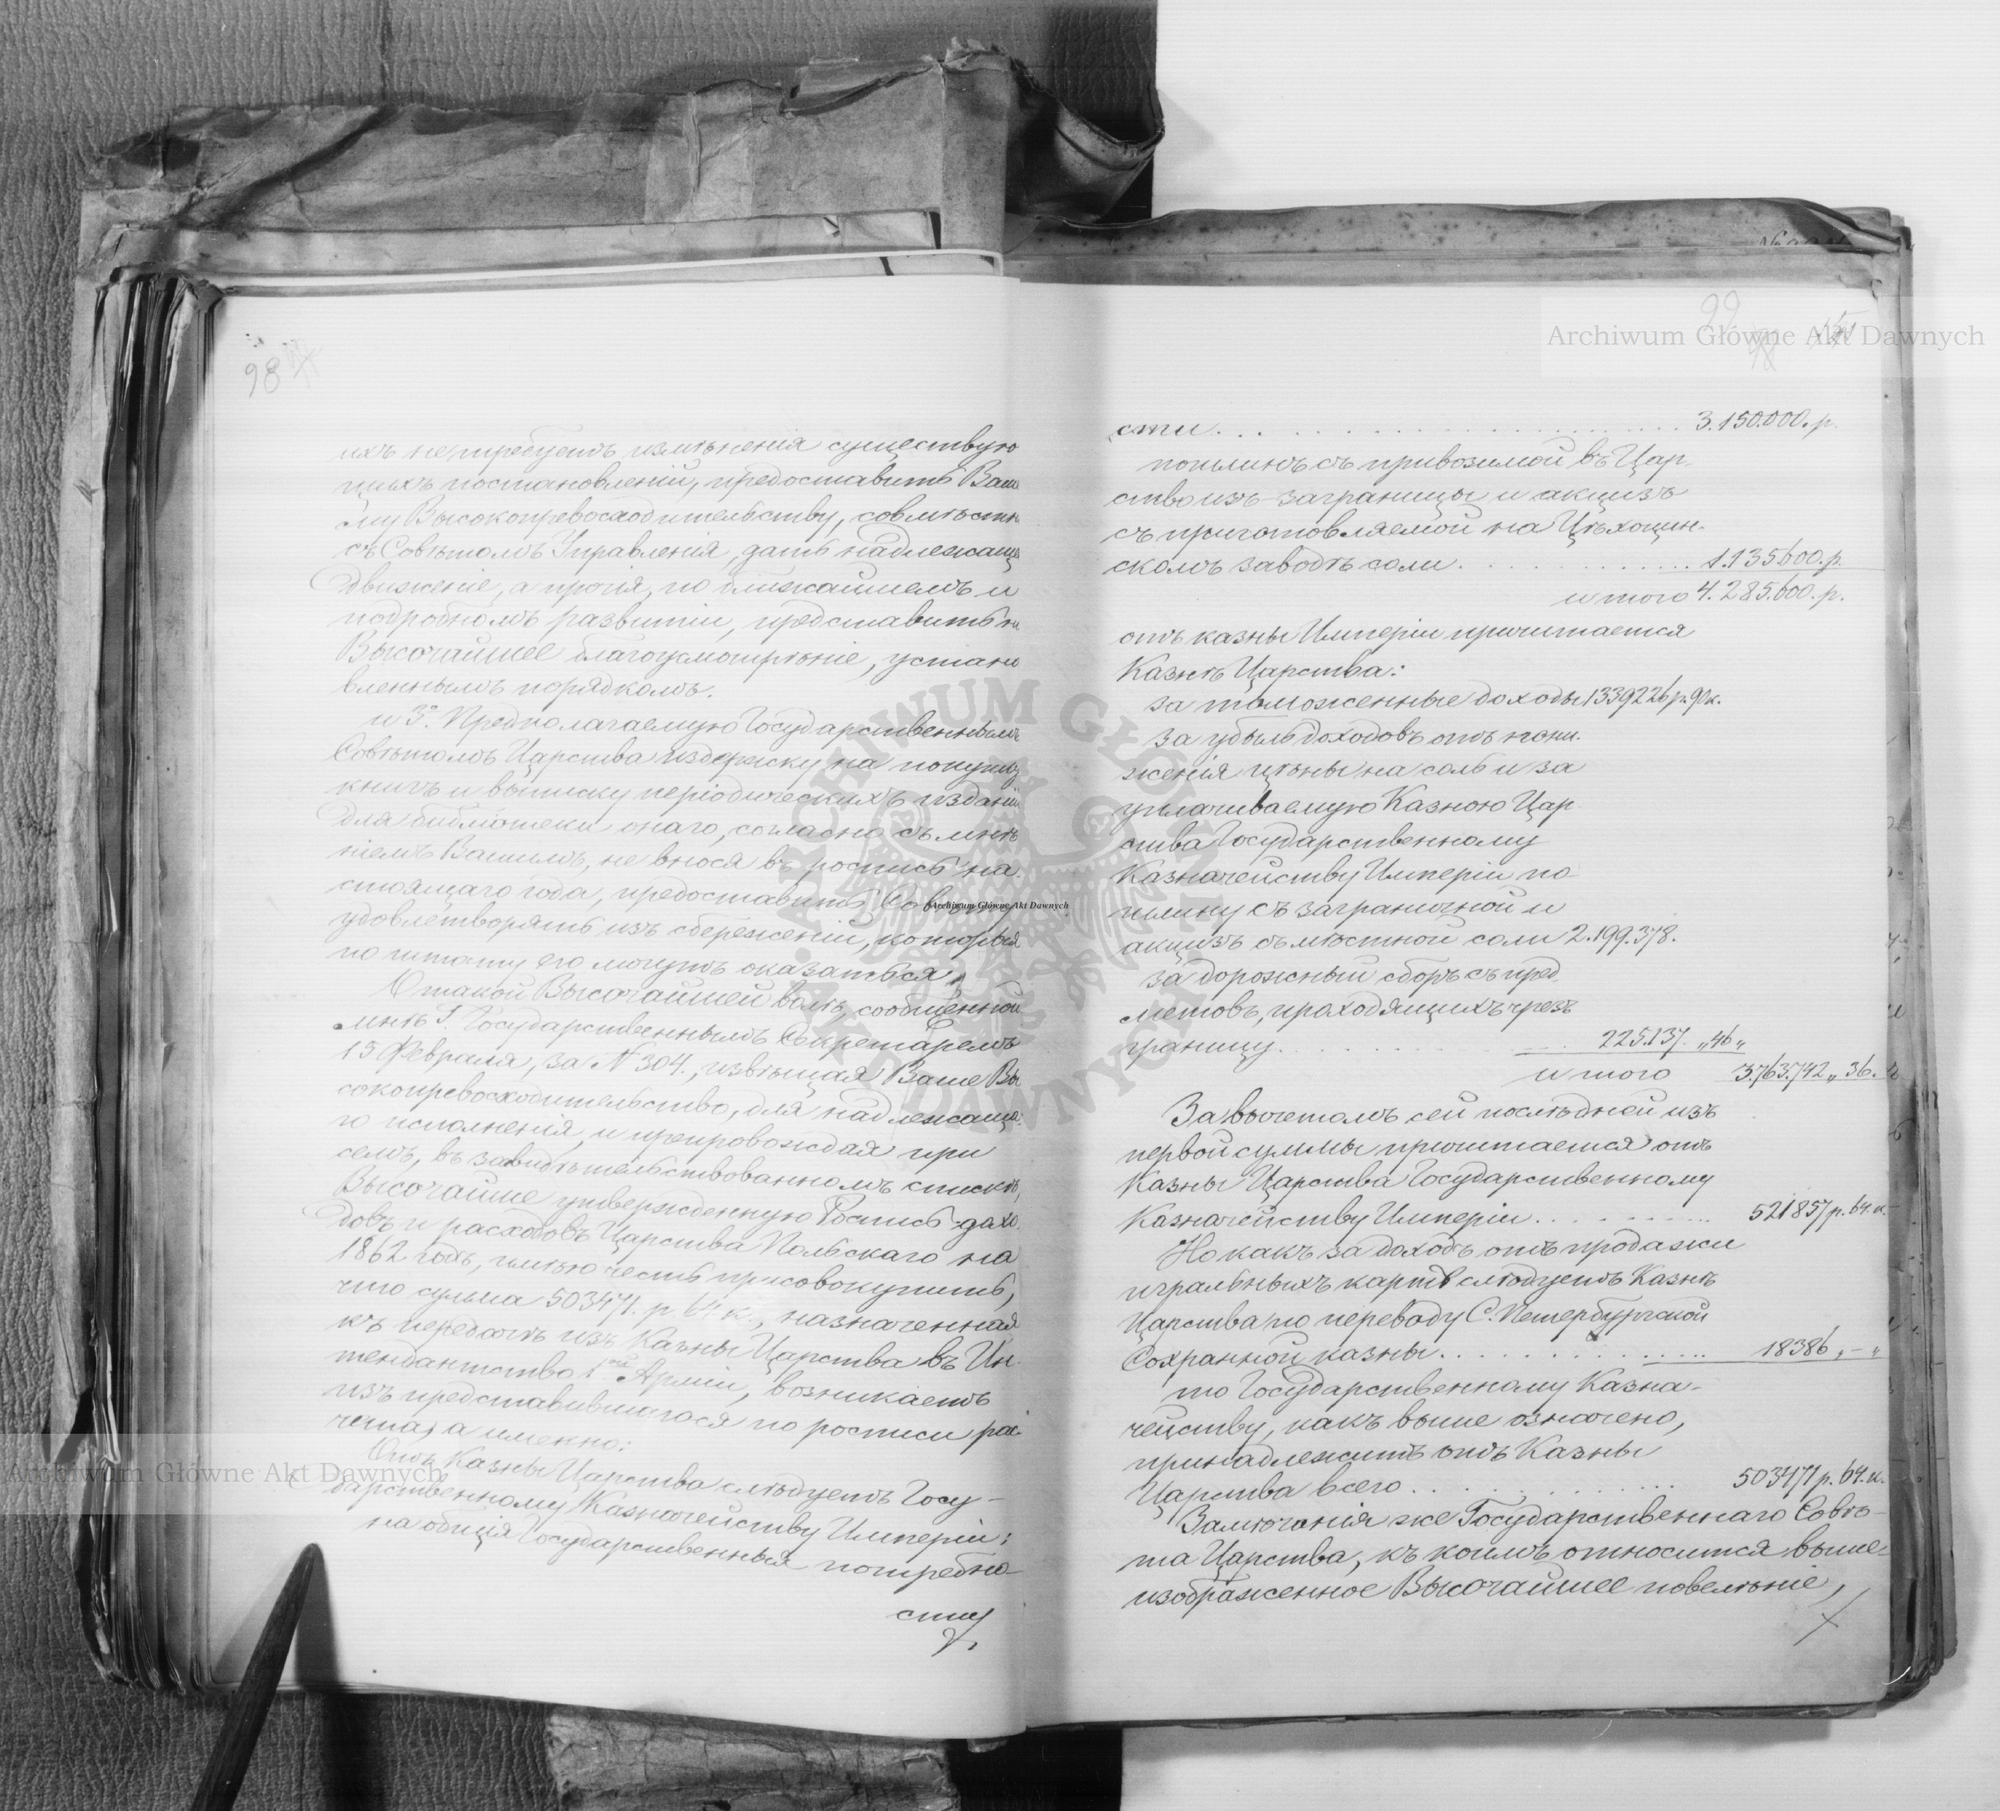 98
ихъ не требуетъ измѣненія существую
щихъ постановленій, предоставить Ваше
му Высокопревосходительству, совмѣстно
съ Совѣтомъ Управленія, дать надлежащее
движеніе, а прочія, по ближайшемъ и
подробномъ развитіи, представить на
Высочайшее благоусмотрѣніе, установ
вленнымъ порядкомъ.
и 3º. Предполагаемую Государственнымъ
Совѣтомъ Царства издержку на покупку
книгъ и выписку періодическихъ изданій
для библіотеки онаго, согласно съ мнѣ
ніемъ Вашимъ, не внося въ роспись на
стоящаго года, предоставить Совѣту
удовлетворять изъ сбереженій, которыя
по штату его могутъ оказаться.
О такой Высочайшей волѣ, сообщенной
мнѣ Г. Государственнымъ Секретаремъ
15 Февраля, за № 304., извѣщая Ваше Вы
сокопревосходительство, для надлежаща
го исполненія, и препровождая при
семъ, въ завидѣтельствованномъ спискѣ,
Высочайше утвержденную Роспись дохо
довъ и расходовъ Царства Польскаго на
1862 годъ, имѣю честь присовокупить,
что сумма 503471. р 64 к., назначенная
къ передачѣ изъ Казны Царства въ Ин
тендантство 1ой Арміи, возникаетъ
изъ представившагося по росписи рас
чета, а именно:
Отъ Казны Царства слѣдуетъ Госу-
дарственному Казначейству Имперіи:
на общія Государственныя потребно
сти
99
сти . . . . . . . . . . . . . . . . . . . . 3.150.000. р.
пошлинъ съ привозимой въ Цар
ство изъ-заграницы и акцизъ
съ приготовляемой на Цѣхоцин-
скомъ заводѣ соли . . . . . . . . . . 1.135600. р.
итого 4.285.600. р.
отъ казны Имперіи причитается
Казнѣ Царства:
за таможенные доходы 1339226 р. 90 к.
за убыль доходовъ отъ пони-
женія цѣны на соль и за
уплачиваемую Казною Цар
ства Государственному
Казначейству Имперіи по
шлину съ заграничной и
акцизъ съ мѣстной соли 2.199.378.
за дорожный сборъ съ пред
метовъ, проходящихъ чрезъ
границу . . . . . . . . . . 225.137. „46„
итого 3.763.742„ 36.
За вычетомъ сей послѣдней изъ
первой суммы причитается отъ
Казны Царства Государственному
Казначейству Имперіи . . . . . . . . . . 521857 р. 64. к.
Но какъ за доходъ отъ продажи
игральныхъ картъ слѣдуетъ Казнѣ
Царства по переводу С. Петербургской
Сохранной казны . . . . . . . . . . . . . 18386„ – „
то Государственному Казна-
чейству, какъ выше означено,
принадлежитъ отъ Казны
Царства всего . . . . . . . . . . . . . 503471 р. 64. к.
Замѣчанія же Государственнаго Совѣ-
та Царства, къ коимъ относится выше-
изображенное Высочайшее повелѣніе,
Archiwum Główne Akt Dawnych
Archiwum Główne Akt Dawnych
Archiwum Główne Akt Dawnych
ARCHIWUM GŁÓWNE AKT DAWNYCH